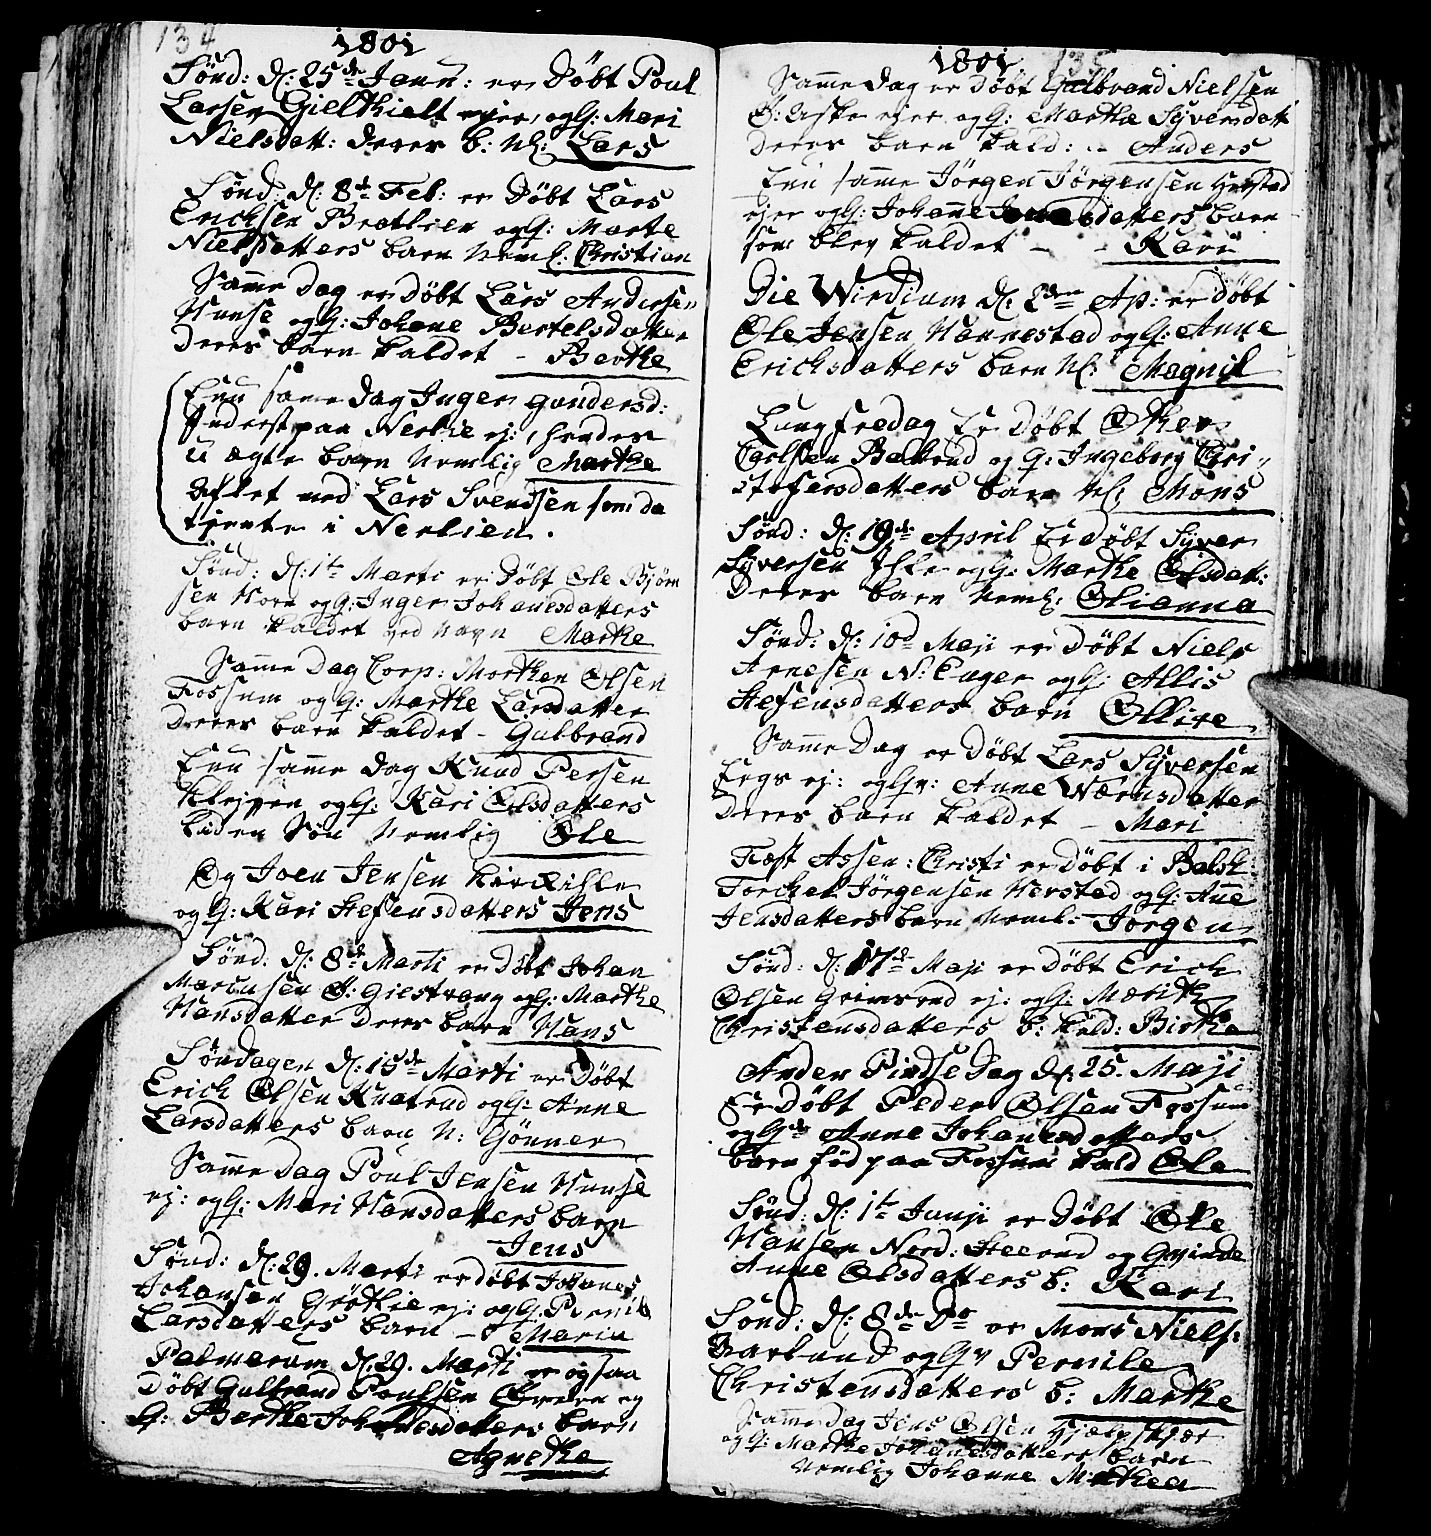 134
1801
Sønd: d: 25de Janu: er Døbt Poul
Larsen Gielthielt ejer, ogH: Mari
Nielsdatt: deres b: Nl: Lars
Sønd: d: 8d Feb: er Døbt Lars
Erichsen Brotlien ogH: Marte
Nielsdatters barn Neml: Christian
Samme Dag er Døbt Lars Andersen
Hunse ogH: Johane Bertelsdatter
Deres barn kaldet - Berthe
Enu same Dag Inger gundersd:
Inderst paa Nerlie ej:, hendes
u ægte barn Nemlig Marthe
Aflet med Lars Svendsen som da
tjente i Nerlien.
Sønd: d: 1te Marti er Døbt Ole Bjørn
sen Horn ogH: Inger Johanesdatters
barn kaldet ved Navn Marthe
Samme Dag Corp: Morthen Olsen
Fossum og H: Marthe Larsdatter
Deres barn kaldet - Gulbrand
Enu samme Dag Knud Persen
Klejven ogH: Kari Olsdatters
liden Søn Nemlig Ole
Og Joen Jensen
og H: Kari Stefensdatters Jens
Sønd: d: 8de Marti er Døbt Johan
Marcusen Ø: Giestvang ogH: Marthe
Hansdatter Deres barn Hans
Søndagen d: 15de Marti er Døbt
Erich Olsen Knatrud ogH: Anne
Larsdatters barn N: Gønner
Samme Dag Poul Jensen Hunse
ej: ogH: Mari Hansdatters barn
Jens
Sønd: d: 29. Marti er døbt Johanes
Johansen Grøtlie ej: ogH: Pernil
Larsdatters barn - Maria
Palmarum d: 29. Marti er ogsaa
Døbt Gulbrand Poulsen Øveren og
H: Berthe Johanesdatters barn
Agnethe
1801 135
Samme Dag er Døbt Gulbrand Nielsen
Ø: Aske ejer og H: Marthe Syversdatt
Deres barn kald: - Anders
Enu samme Jørgen Jørgensen Hvestad
ejer ogH: Johanne datters barn
som blev kaldet - - Kari
Die Viridium d: 2den Ap: er døbt
Ole Jensen Hannestad ogH: Anne
Ericksdatters barn Nl: Magnil
Langfredag Er Døbt Other
Carlsen Bakrud og H: Ingeborg Cri-
stofersdatters barn Nl: Mons
Sønd: d: 19de April Er Døbt Syver
Syversen Ihle ogH: Marthe Olsdatt:
Deres barn Neml: Olianna
Sønd: d: 10d Maji er Døbt Niels
Arnesen N: Enger ogH: Allis
Stefensdatters barn Ollise
Samme Dag er Døbt Lars Syversen
Ergs ej: ogHv: Anne Wærnsdatter
Deres barn kaldet - Mari
Fæst Assen: Christi er Døbt i Balsk:
Torckel Jørgensen Verstad ogH: Ane
Jensdatters barn Neml: Jørgen
Sønd: d: 17de Maji er Døbt Erich
Olsen Grimsrud ej: ogH: Marith
Christensdatters b: kald: Birthe
Anden Pindse Dag d: 25. Maji
Er Døbt Peder Olsen Fossum
ogH: Anne Johanesdatters
barn fød paa Fossum kald Ole
Sønd: d: 1te Junji er Døbt Ole
Hansen Nord: Steerud og Qvinde
Anne Olsdatters b: Kari
Sønd: d: 8de Do er Mons Niels:
Barlund ogHv Pernile
Christensdatters b: Marthe
Samme Dag Jens Olsen Hjælpskjær
og H: Marthe Johanesdatters barn
Nemlig Johanne Mathea